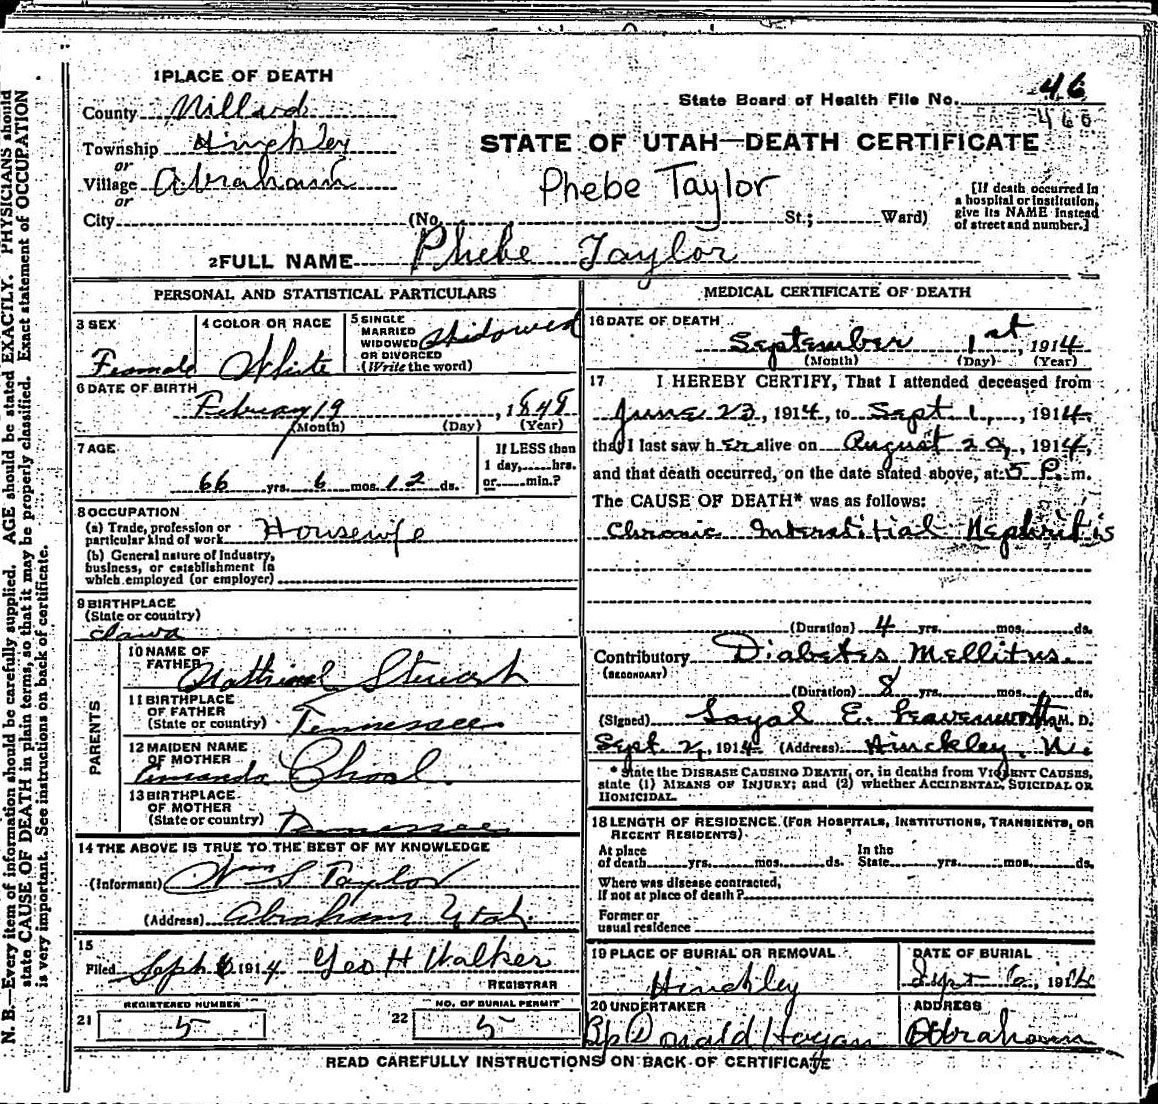 1 PLACE OF DEATH
County Millard
State Board of Health File No. 46
460
Township Hinckley
STATE OF UTAH—DEATH CERTIFICATE
or
Village Abraham
Phebe Taylor
or
City (No. St.; Ward)
[If death occurred in
a hospital or institution,
give its NAME instead
of street and number.]
2 FULL NAME Phebe Taylor
PERSONAL AND STATISTICAL PARTICULARS
3 SEX
Female
4 COLOR OR RACE
White
5 SINGLE
MARRIED
WIDOWED
OR DIVORCED
(Write the word)
Widowed
6 DATE OF BIRTH
February 19, 1848
(Month) (Day) (Year)
7 AGE
66 yrs. 6 mos. 12 ds.
If LESS than
1 day, hrs.
or min.?
8 OCCUPATION
(a) Trade, profession or
particular kind of work Housewife
(b) General nature of Industry,
business, or establishment in
which employed (or employer)
9 BIRTHPLACE
(State or country)
Iowa
PARENTS
10 NAME OF
FATHER
Stewart
11 BIRTHPLACE
OF FATHER
(State or country) Tennessee
12 MAIDEN NAME
OF MOTHER
13 BIRTHPLACE
OF MOTHER
(State or country) Tennessee
14 THE ABOVE IS TRUE TO THE BEST OF MY KNOWLEDGE
(Informant) Wm S Taylor
(Address) Abraham Utah.
15
Filed Sept 6 1914 Geo H Walker
REGISTRAR
REGISTERED NUMBER
21 5
NO. OF BURIAL PERMIT
22 5
MEDICAL CERTIFICATE OF DEATH
16 DATE OF DEATH
September 1st, 1914
(Month) (Day) (Year)
17 I HEREBY CERTIFY, That I attended deceased from
June 23, 1914, to Sept 1, 1914,
that I last saw her alive on August 29, 1914,
and that death occurred, on the date stated above, at 5 P. m.
The CAUSE OF DEATH* was as follows:
Chronic Interstitial Nephritis
(Duration) 4 yrs. mos. ds.
Contributory Diabetes Mellitus.
(SECONDARY)
(Duration) 8 yrs. mos. ds.
(Signed) E. Leavenworth M. D.
Sept. 2, 1914 (Address) Hinckley
* State the DISEASE CAUSING DEATH, or, in deaths from VIOLENT CAUSES,
state (1) MEANS OF INJURY; and (2) whether ACCIDENTAL, SUICIDAL OR
HOMICIDAL.
18 LENGTH OF RESIDENCE (FOR HOSPITALS, INSTITUTIONS, TRANSIENTS, OR
RECENT RESIDENTS)
At place
of death yrs. mos. ds.
In the
State yrs. mos. ds.
Where was disease contracted,
if not at place of death?
Former or
usual residence
19 PLACE OF BURIAL OR REMOVAL
Hinckley
DATE OF BURIAL
Sept 6, 1914
20 UNDERTAKER
Bp Donald Hogan
ADDRESS
Abraham
READ CAREFULLY INSTRUCTIONS ON BACK OF CERTIFICATE
N. B.—Every item of information should be carefully supplied. AGE should be stated EXACTLY. PHYSICIANS should
state CAUSE OF DEATH in plain terms, so that it may be properly classified. Exact statement of OCCUPATION
is very important. See instructions on back of certificate.